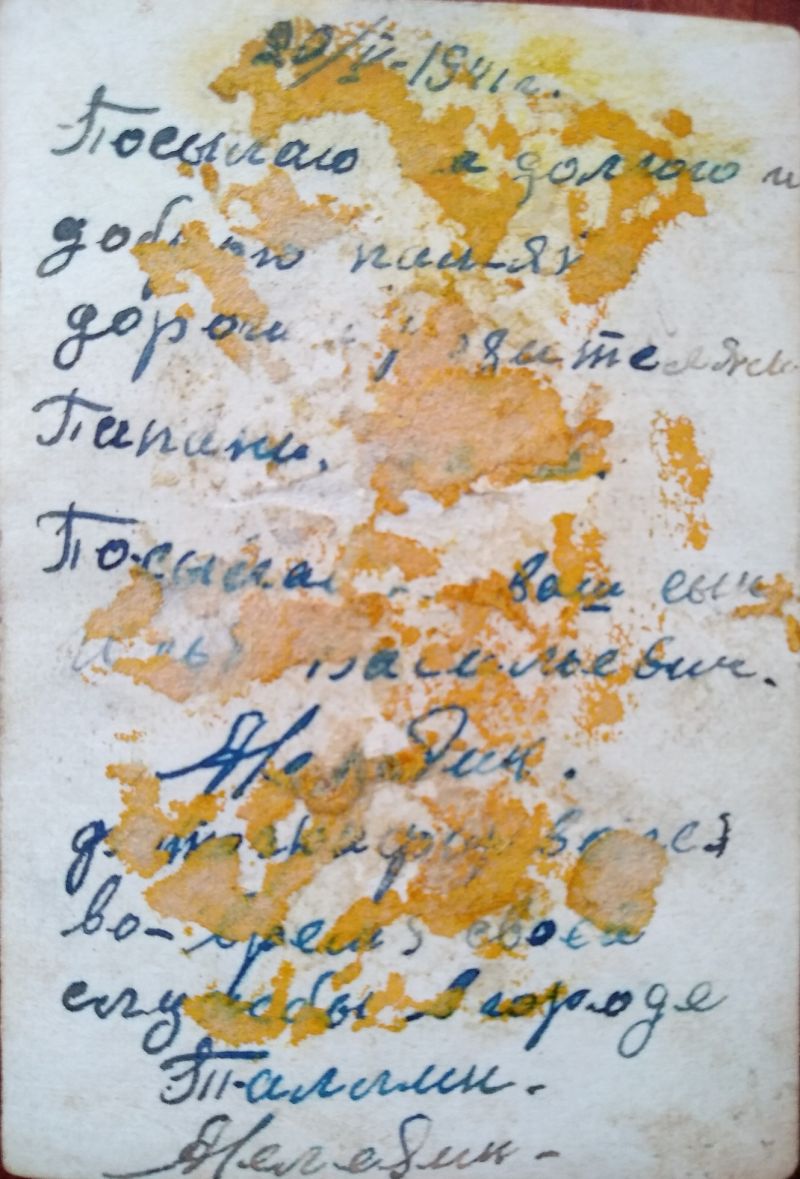 20/V-1941г.
Посылаю на долгою и
доброю память
дорогим родителям
Папани,
Посылает ваш сын
Васильевич.
фотографировался
во-время своей
службы в городе
Таллин.